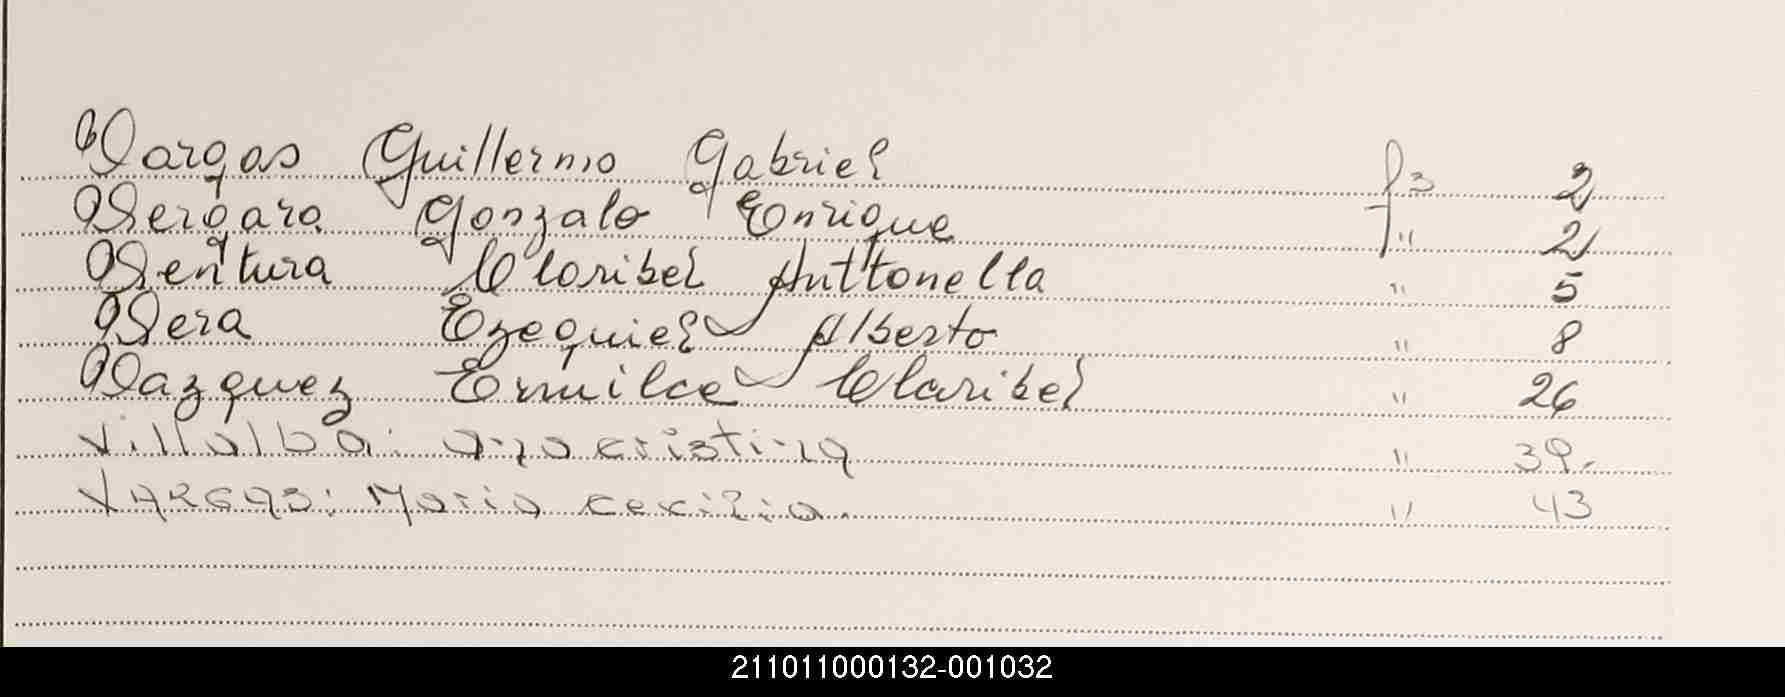 Vargas Guillermo Gabriel fs 2
Vergara Gonzalo Enrique " 2
Ventura Claribel Anttonella " 5
Vera Ezequiel Alberto " 8
Vazquez Ermilce Claribel " 26
Villalba: ana cristina " 39.
VARGAS: Maria cecilia. " 43
211011000132-001032